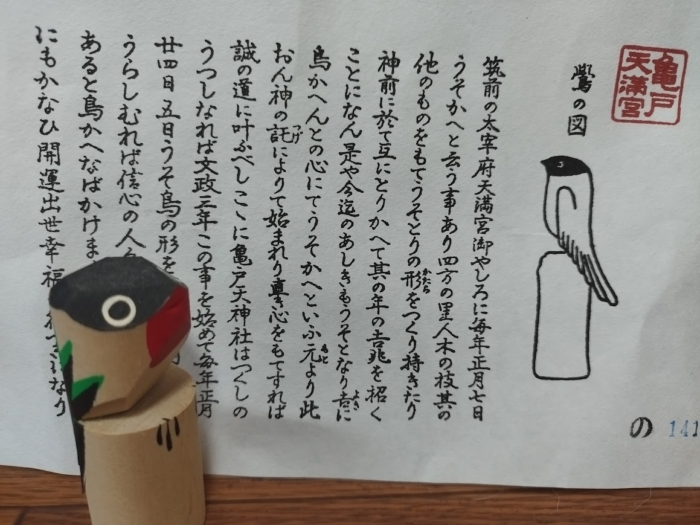 亀戸
天満宮
鷽の図
筑前の太宰府天満宮御やしろに毎年正月七日
うそかへと云う事あり四方の里人木の枝其の
他のものをもてうそとりの形をつくり持きたり
かたち
神前に於て互にとりかへて其の年の吉兆を招く
ことになん是や今迄のあしきもうそとなり吉に
よき
鳥かへんとの心にてうそかへといふ元より此
もと
おん神の託によりて始まれり真心をもてすれば
つげ
誠の道に叶ふべしこゝに亀戸天神社はつくしの
うつしなれば文政三年この事を始めて毎年正月
廿四日五日うそ鳥の形を
うらしむれば信心の人
あると鳥かへなばかけま
にもかなひ開運出世幸福 なり
の 141